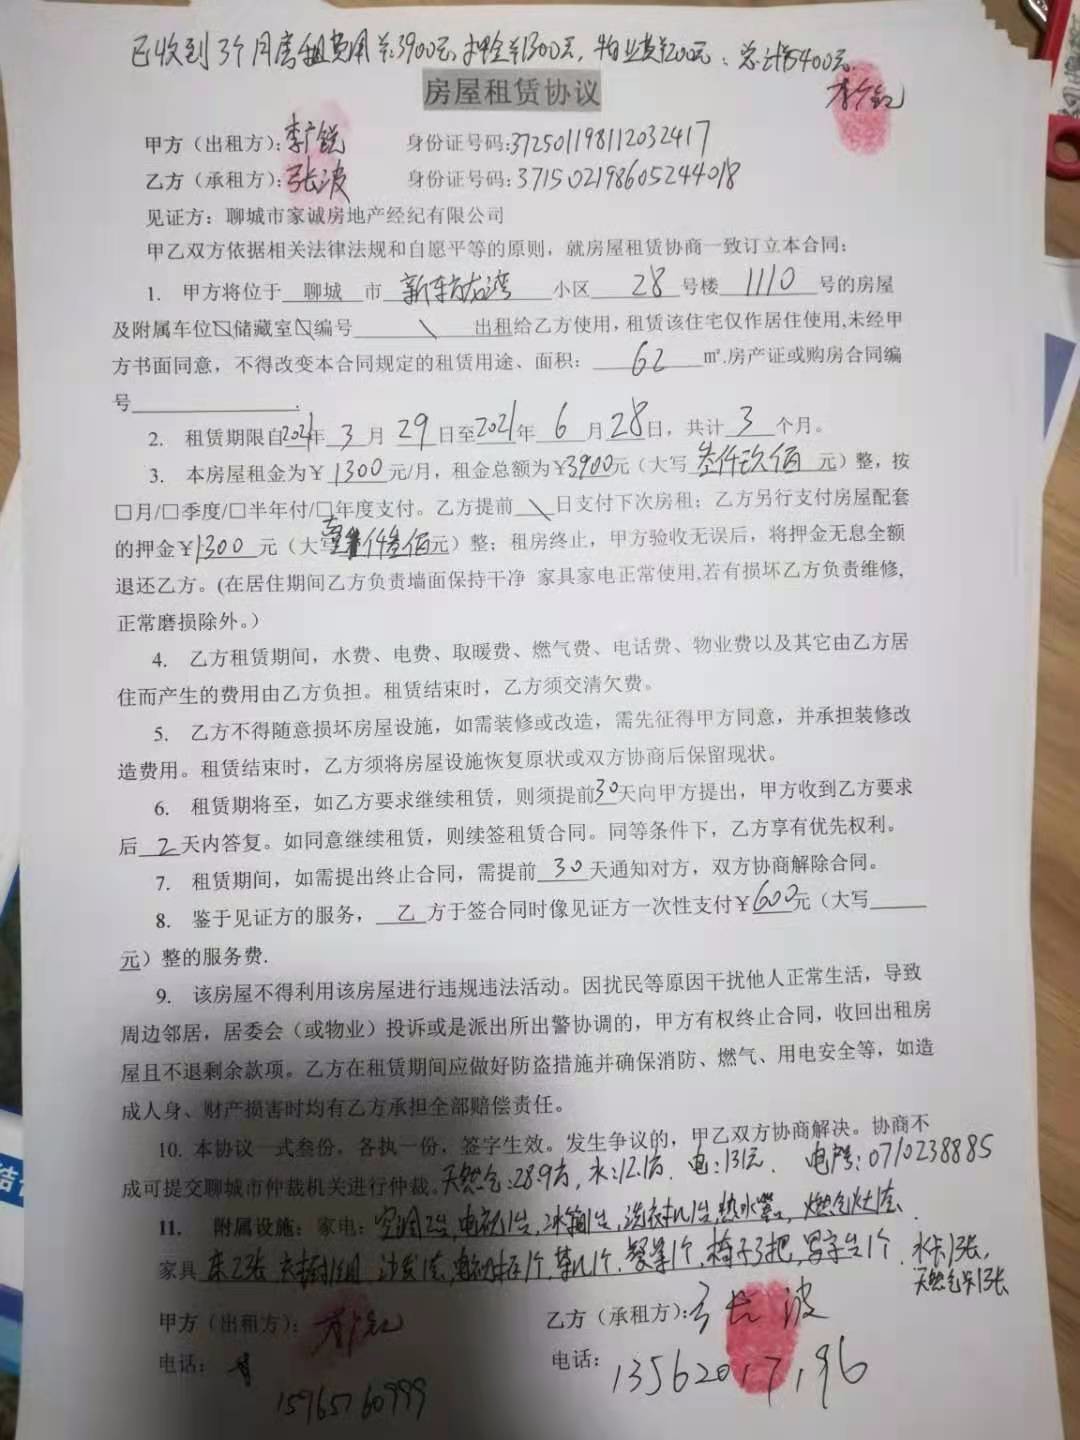 已收到3个月房租费用¥:3900元,押金¥1300元,物业费¥200元:总计¥5400元
房屋租赁协议
甲方(出租方):李广锐 身份证号码:372501198112032417
乙方(承租方):张波 身份证号码:371502198605244018
见证方:聊城市家诚房地产经纪有限公司
甲乙双方依据相关法律法规和自愿平等的原则,就房屋租赁协商一致订立本合同:
1. 甲方将位于 聊城 市 新东方龙湾 小区 28 号楼 1110 号的房屋
及附属车位□储藏室□编号 \ 出租给乙方使用,租赁该住宅仅作居住使用,未经甲
方书面同意,不得改变本合同规定的租赁用途、面积: 62 ㎡.房产证或购房合同编
号
2. 租赁期限自2021年 3 月 29 日至2021年 6 月28日,共计 3 个月。
3. 本房屋租金为¥ 1300 元/月,租金总额为¥3900元(大写 叁仟玖佰 元)整,按
□月/□季度/□半年付/□年度支付。乙方提前 \ 日支付下次房租;乙方另行支付房屋配套
的押金¥1300 元(大写壹仟叁佰元)整;租房终止,甲方验收无误后,将押金无息全额
退还乙方。(在居住期间乙方负责墙面保持干净 家具家电正常使用,若有损坏乙方负责维修,
正常磨损除外。)
4. 乙方租赁期间,水费、电费、取暖费、燃气费、电话费、物业费以及其它由乙方居
住而产生的费用由乙方负担。租赁结束时,乙方须交清欠费。
5. 乙方不得随意损坏房屋设施,如需装修或改造,需先征得甲方同意,并承担装修改
造费用。租赁结束时,乙方须将房屋设施恢复原状或双方协商后保留现状。
6. 租赁期将至,如乙方要求继续租赁,则须提前30天向甲方提出,甲方收到乙方要求
后 2 天内答复。如同意继续租赁,则续签租赁合同。同等条件下,乙方享有优先权利。
7. 租赁期间,如需提出终止合同,需提前 30 天通知对方,双方协商解除合同。
8. 鉴于见证方的服务, 乙 方于签合同时像见证方一次性支付¥600元(大写
元)整的服务费.
9. 该房屋不得利用该房屋进行违规违法活动。因扰民等原因干扰他人正常生活,导致
周边邻居,居委会(或物业)投诉或是派出所出警协调的,甲方有权终止合同,收回出租房
屋且不退剩余款项。乙方在租赁期间应做好防盗措施并确保消防、燃气、用电安全等,如造
成人身、财产损害时均有乙方承担全部赔偿责任。
10. 本协议一式叁份,各执一份,签字生效。发生争议的,甲乙双方协商解决。协商不
成可提交聊城市仲裁机关进行仲裁。天然气:28.9方,水:12.1方. 电:131元. 电户号:0710238885
11. 附属设施:家电:空调2台,电视1台,冰箱1台,洗衣机1台,热水器1台,燃气灶1套.
家具 床2张 衣橱1组 沙发1套,电视柜1个,茶几1个,餐桌1个,椅子3把,写字台1个 水卡1张,
天然气卡1张
甲方(出租方): 李广锐 乙方(承租方):张波
电话: 15965760999 电话: 13562017196